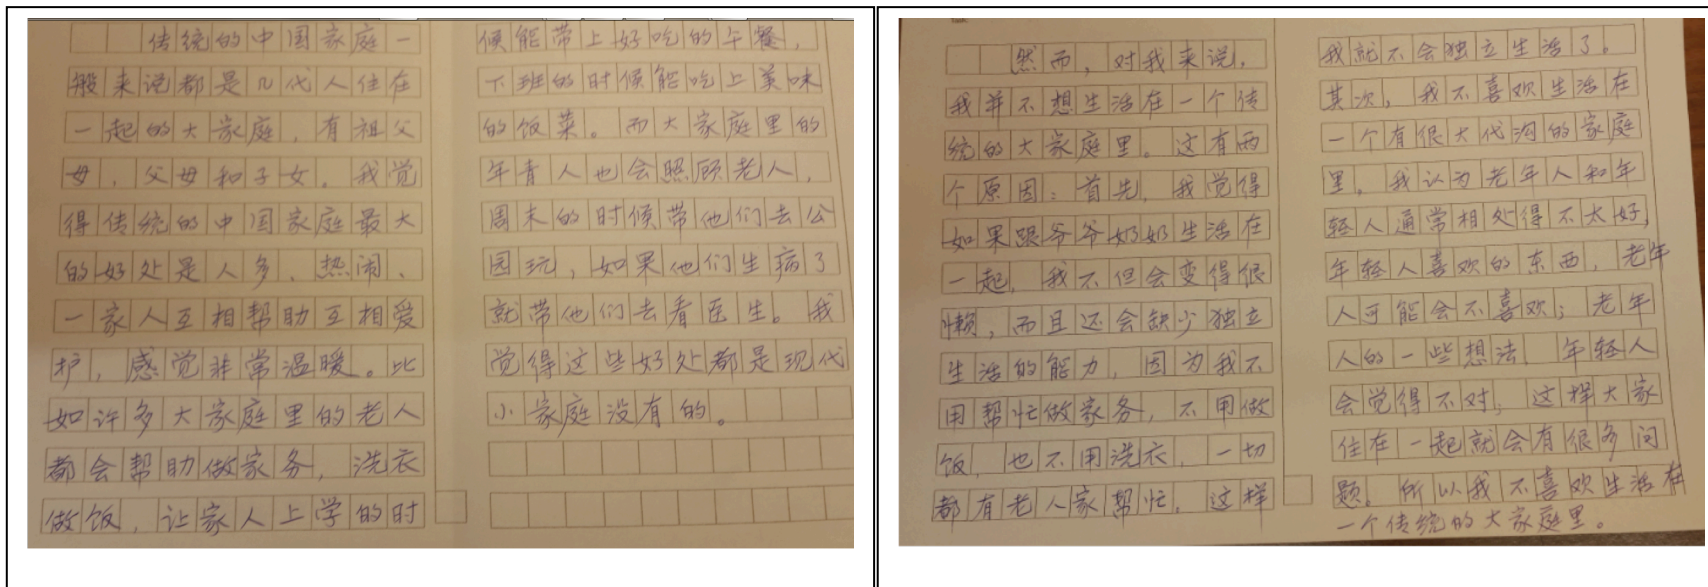 传统的中国家庭一
般来说都是几代人住在
一起的大家庭，有祖父
母，父母和子女。我觉
得传统的中国家庭最大
的好处是人多、热闹、
一家人互相帮助互相爱
护，感觉非常温暖。比
如许多大家庭里的老人
都会帮助做家务，洗衣
做饭，让家人上学的时
候能带上好吃的午餐，
下班的时候能吃上美味
的饭菜。而大家庭里的
年青人也会照顾老人，
周末的时候带他们去公
园玩，如果他们生病了
就带他们去看医生。我
觉得这些好处都是现代
小家庭没有的。
然而，对我来说，
我并不想生活在一个传
统的大家庭里。这有两
个原因：首先，我觉得
如果跟爷爷奶奶生活在
一起，我不但会变得很
懒，而且还会缺少独立
生活的能力，因为我不
用帮忙做家务，不用做
饭，也不用洗衣，一切
都有老人家帮忙，这样
我就不会独立生活了。
其次，我不喜欢生活在
一个有很大代沟的家庭
里，我认为老年人和年
轻人通常相处得不太好，
年轻人喜欢的东西，老年
人可能会不喜欢；老年
人的一些想法，年轻人
会觉得不对；这样大家
住在一起就会有很多问
题。所以我不喜欢生活在
一个传统的大家庭里。